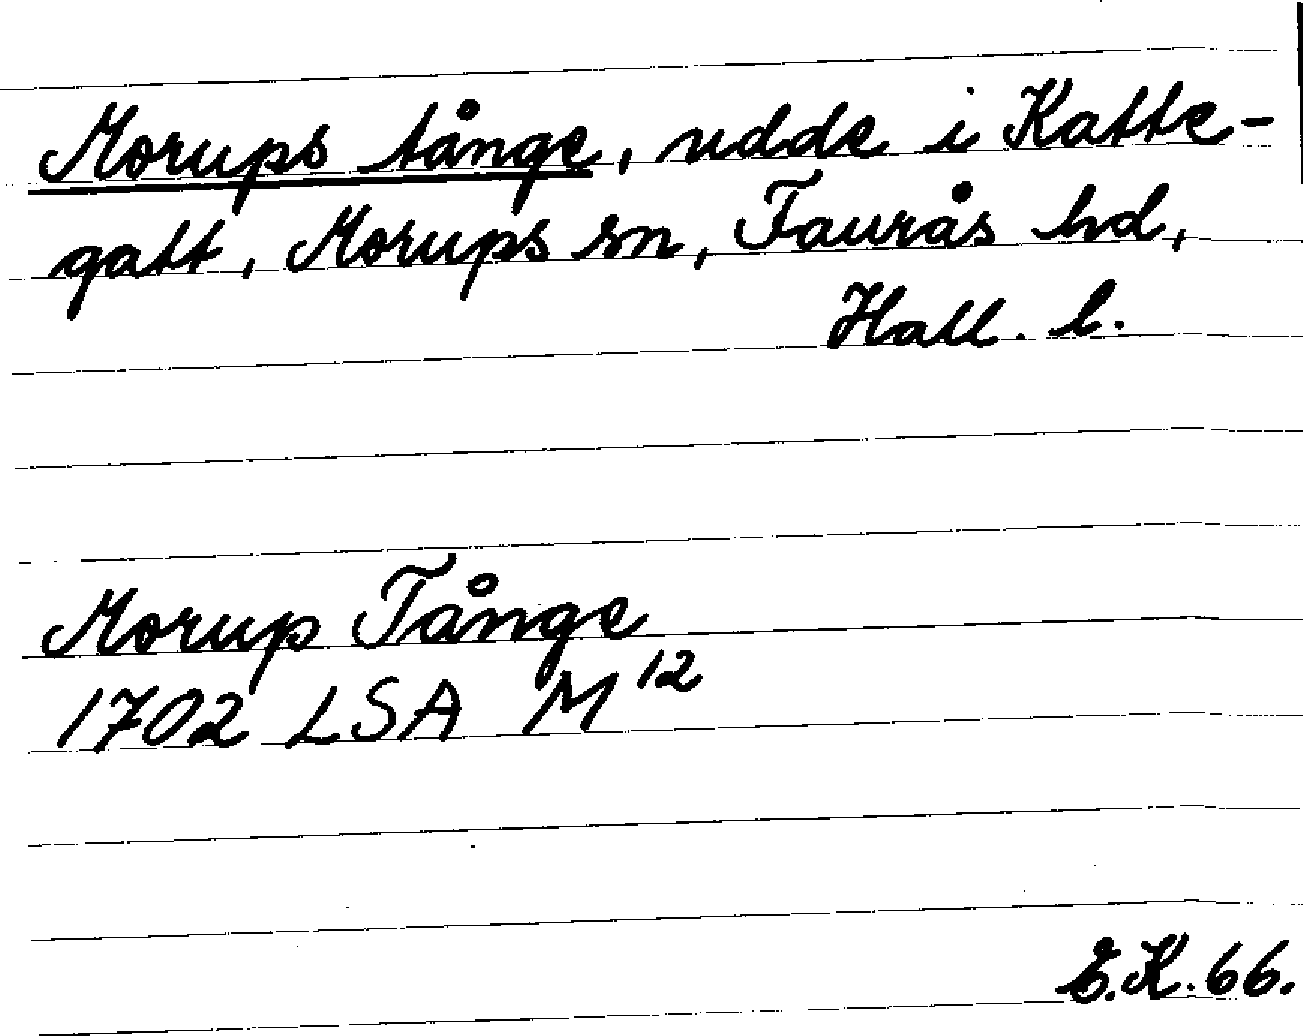 Morups tånge, udde i Katte-
gatt, Morups sn, Faurås hd,
Hall. l.
Morup Tånge
1702 LSA M 12
E.K. 66.